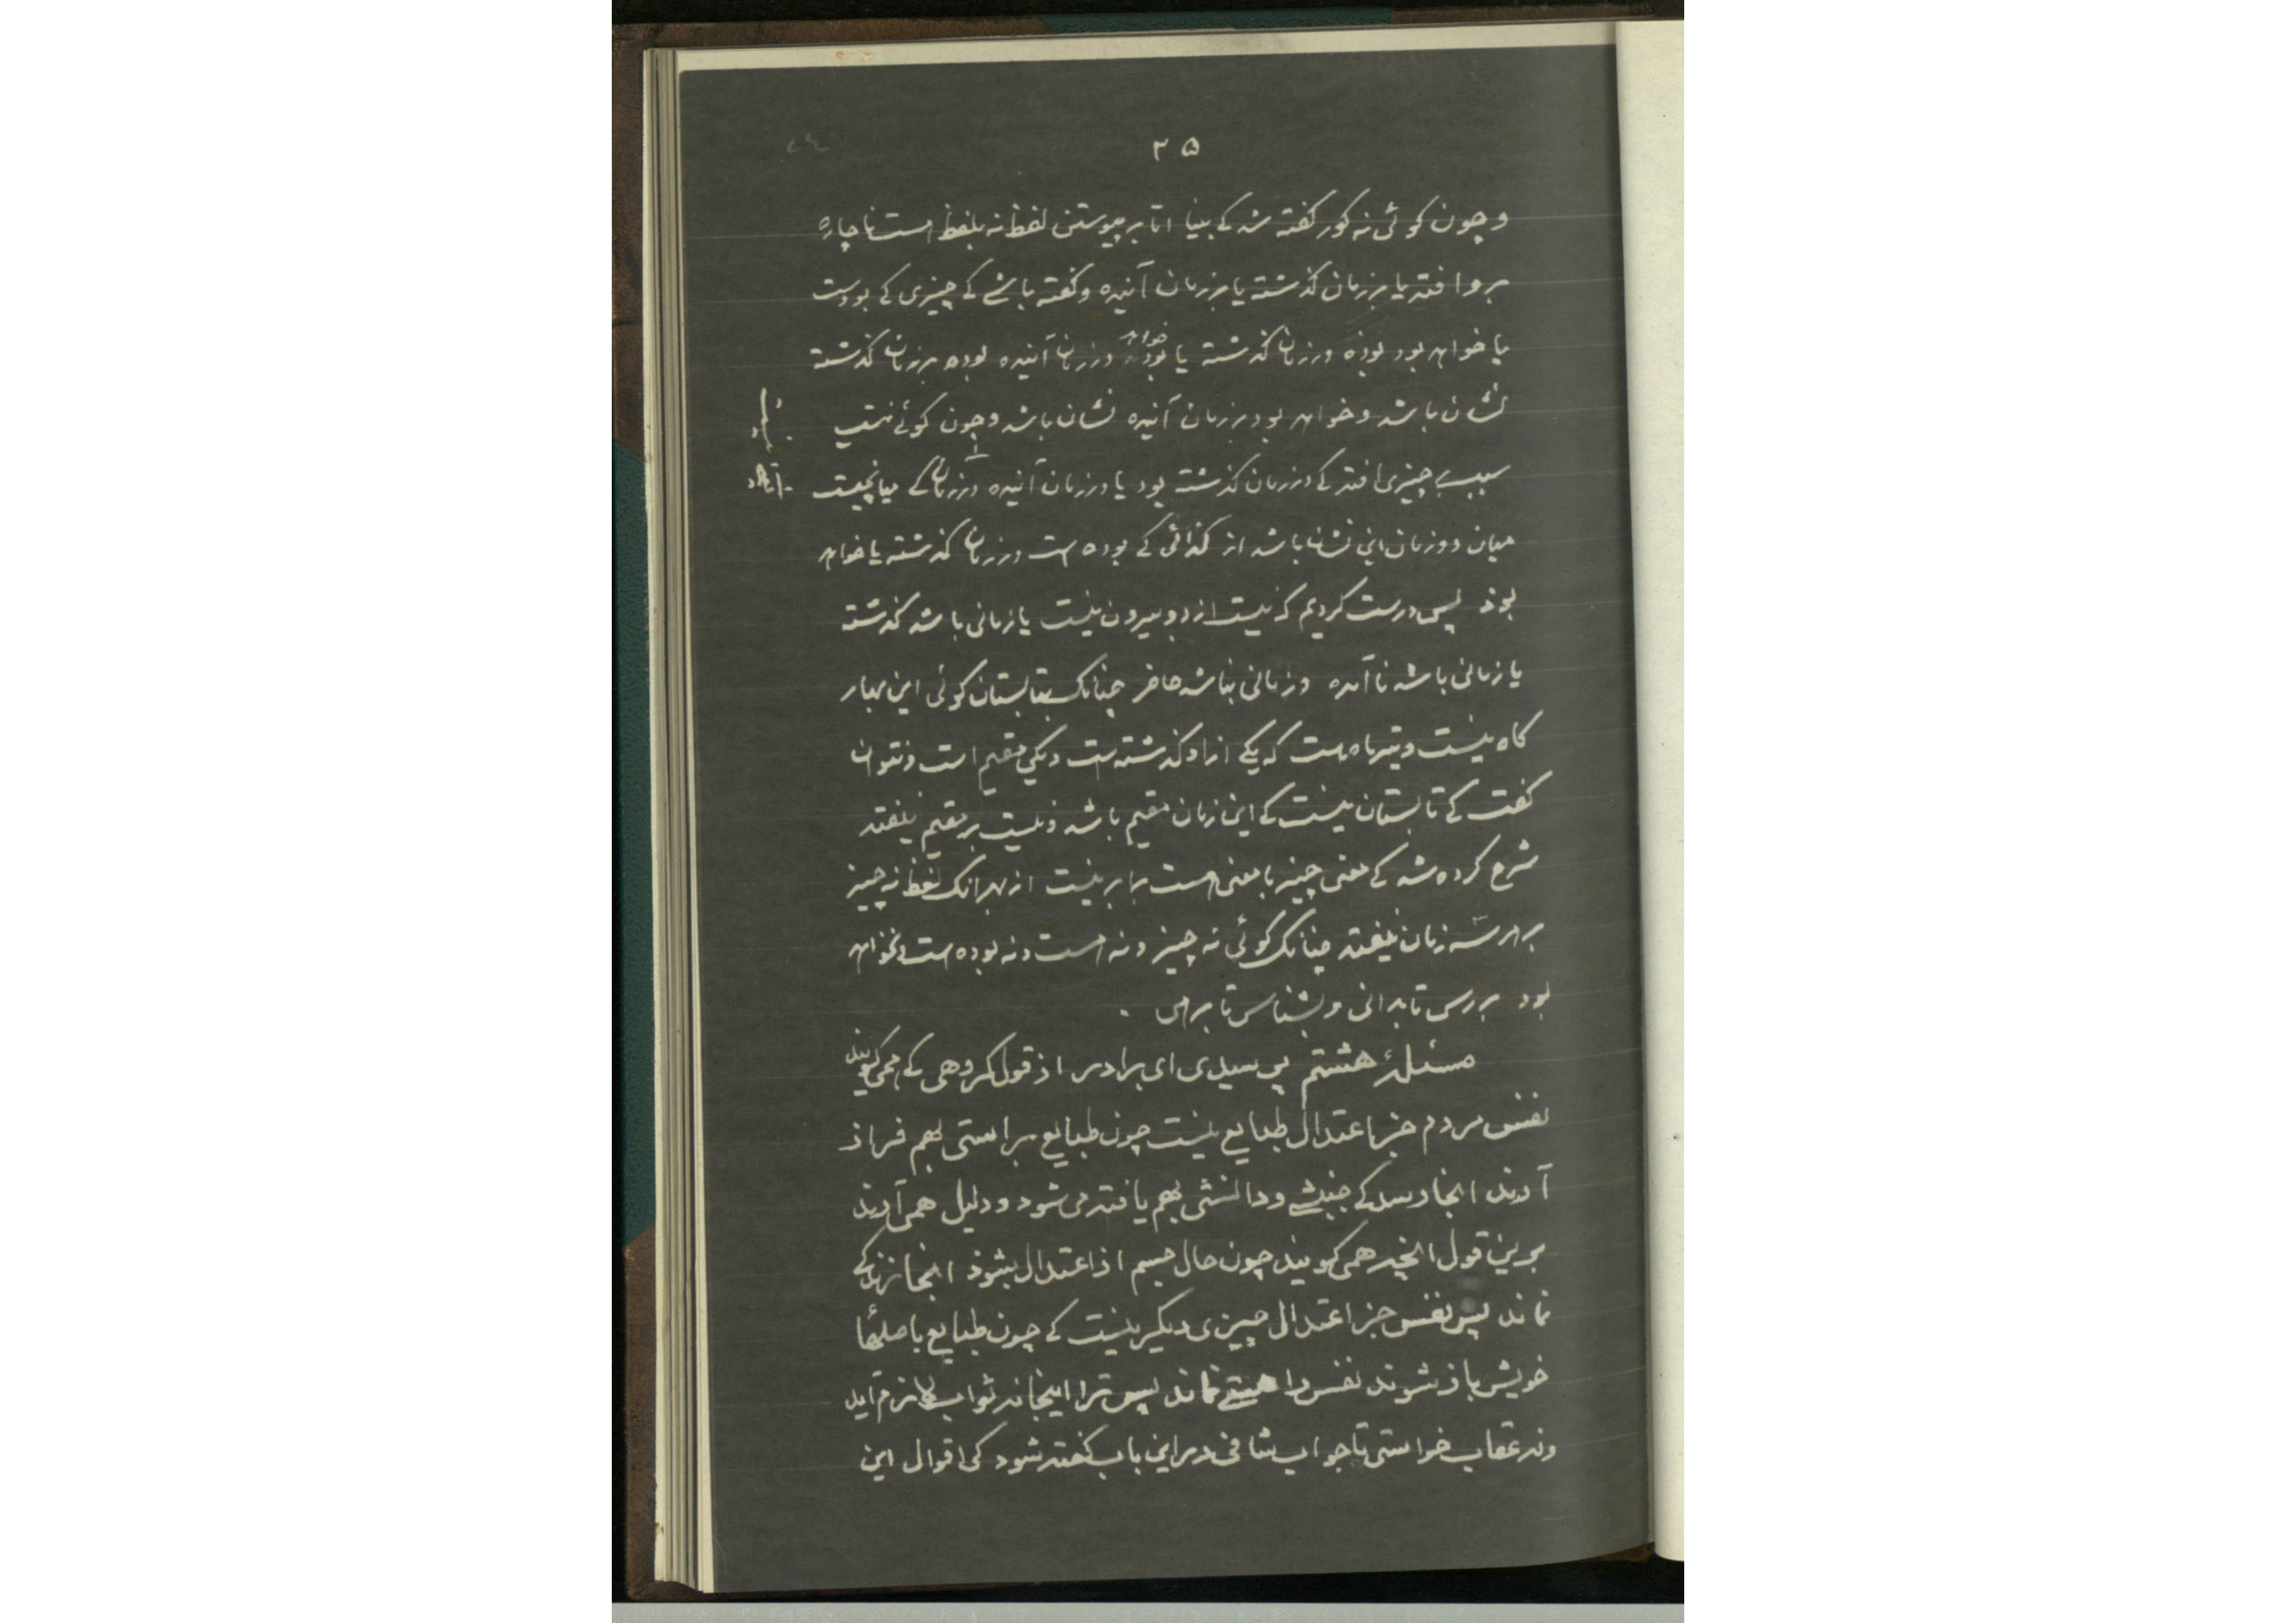 ۲۵
و چون کوئی نه کور کفته شد کے بینا اما بر پیوستن لفظ نه بلفظ هست ناچاره
بر و افتد یا بر زمان کذشته یا بر زمان آینده و کفته باشے کے چیزی کے بودست
یا خواهد بود بوذه در زمان کذشته یا خواهد بود در زمان آینده بوده بر زمان کذشته
نشان باشد و خواهد بود بر زمان آینده نشان باشد و چون کوئے نیست
سبب چیزی افتد کے در زمان کذشته بود یا در زمان آینده در زمان کے میانچیست
میان دو زمان این نشان باشد از کذائی کے بوده است در زمان کذشته یا خواهد
بوذ پس درست کردیم که نیست از دو بیرون نیست یا زمانی باشد کذشته
یا زمانی باشد ناآمده و زمانی نباشد حاضر چنانک بتابستان کوئی این بهار
کاه نیست و تیرماه است که یکے ازاو کذشته است و یکی مقیم است و نتوان
کفت کے تابستان نیست کے این زمان مقیم باشد و نیست بر مقیم نیفتد
شرح کرده شد کے معنی چیز با معنی هست برابر نیست از بهر انک لفظ نه چیز
بر هر سه زمان نیفتد چنانک کوئی نه چیز و نه هست و نه بوده است و نخواهد
بود بررس تا بدانی و بشناس تا برهی .
مسئلۀ هشتم پرسیدی ای برادر از قول کروهی کے همی کویند
نفس مردم جز اعتدال طبایع نیست چون طبایع براستی بهم فراز
آیند انجا رسد کے جنبشے و دانشی بهم یافته می شود و دلیل همی آرند
برین قول انچه همی کویند چون حال جسم از اعتدال بشوذ انجا زندکے
نماند پس نفس جز اعتدال چیزی دیکر نیست کے چون طبایع باصلهٔا
خویش باز شوند نفس را هستے نماند پس ترا اینجا نه ثواب لازم آید
و نه عقاب خواستی تا جواب شافی در این باب کفته شود کی اقوال این